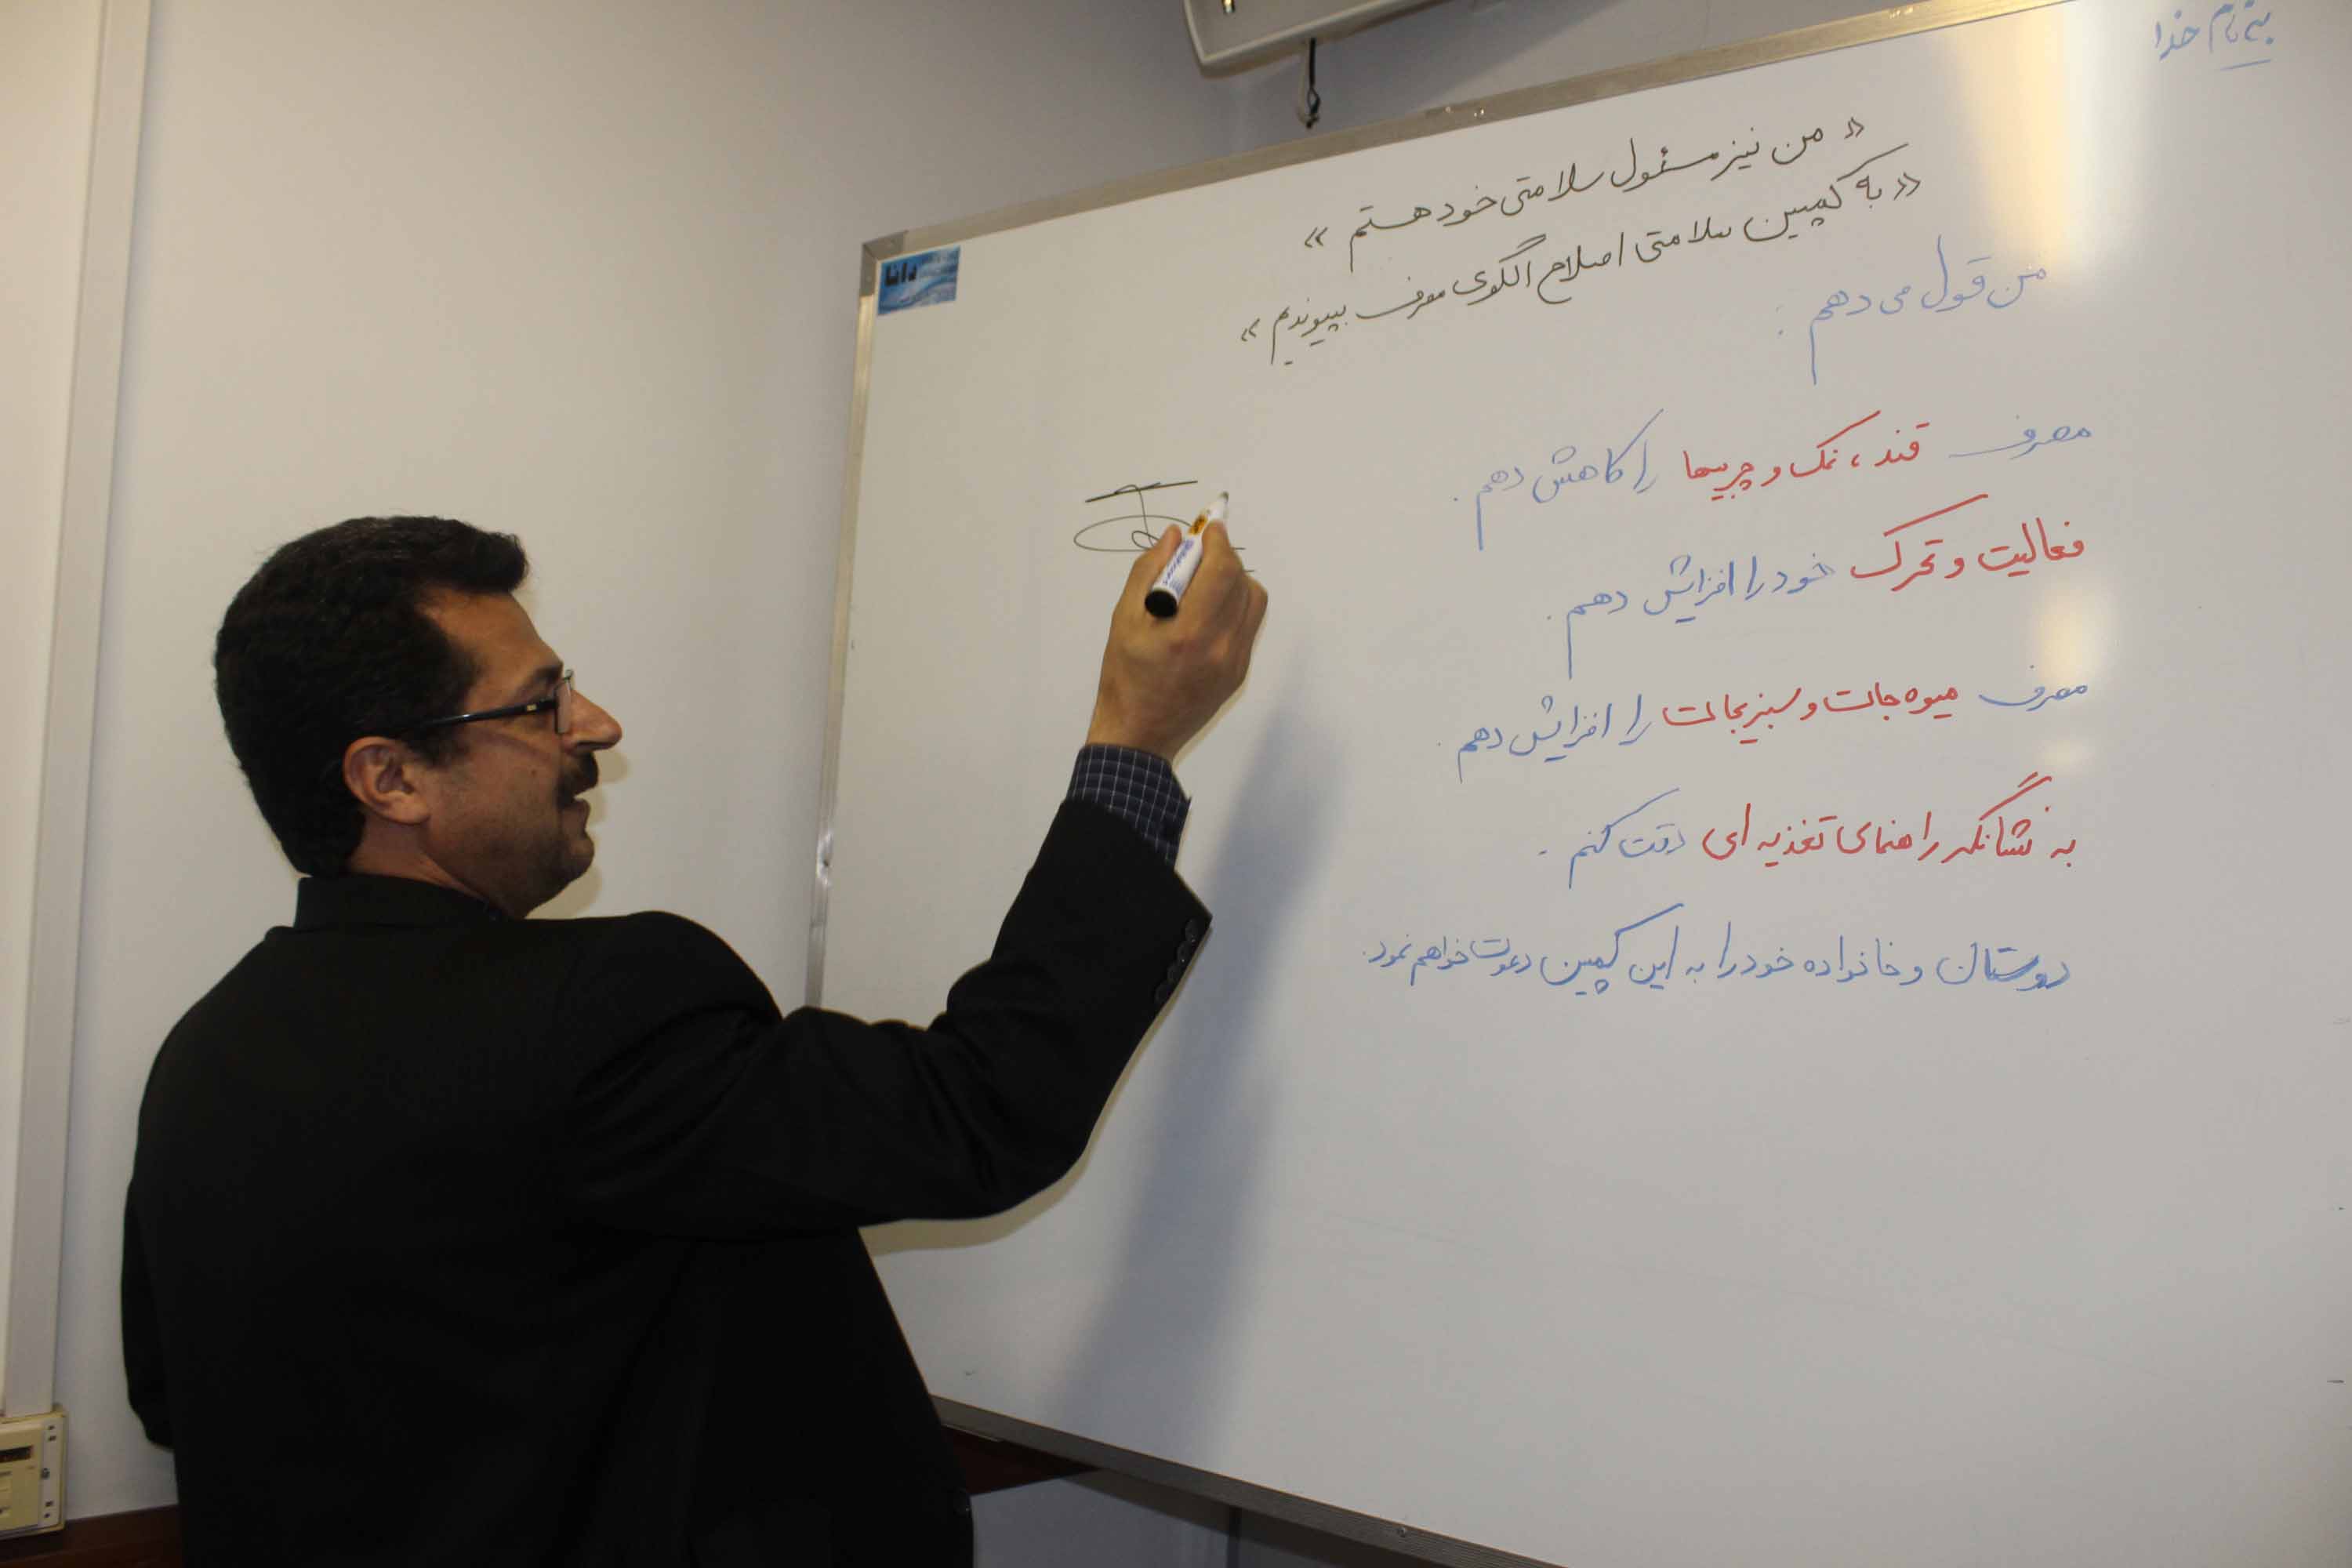 به نام خدا
« من نیز مسئول سلامتی خود هستم »
« به کمپین سلامتی اصلاح الگوی مصرف بپیوندیم »
من قول می دهم :
مصرف قند ، نمک و چربیها را کاهش دهم .
فعالیت و تحرک خود را افزایش دهم .
مصرف میوه جات و سبزیجات را افزایش دهم .
به نشانگر راهنمای تغذیه ای دقت کنم .
دوستان و خانواده خود را به این کمپین دعوت خواهم نمود.
دانا